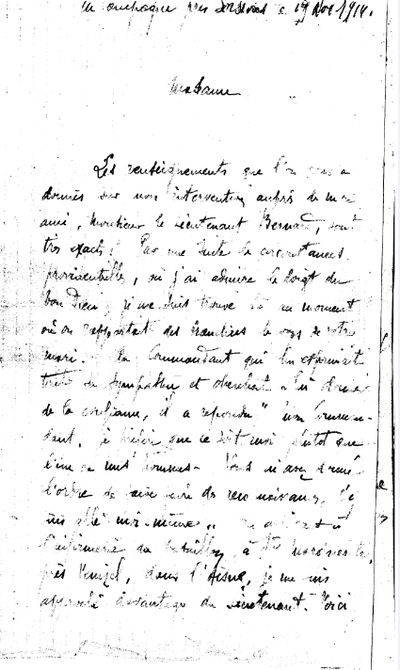 en campagne près Soissons le 19 Nov 1914.
Madame
Les renseignements que l'on vous a
donnés sur mon intervention auprès de mon
ami, Monsieur le Lieutenant Bernard, sont
très exacts! Par une suite de circonstances
providentielles, où j'ai admiré le doigt du
bon Dieu, je me suis trouvé là au moment
où on rapportait des tranchées le corps de votre
mari. Au Commandant qui lui exprimait
toute sa sympathie et cherchait à lui donner
de la confiance, il a répondu "mon Comman-
dant, je préfère que ce soit moi plutôt que
l'un de mes hommes. Vous m'avez donné
l'ordre de faire faire des reconnaissances, j'y
suis allé moi-même".
l'infirmerie du bataillon, à Ste Marguerite,
près Venizel, dans l'Aisne, je me suis
approché davantage du Lieutenant. Voici